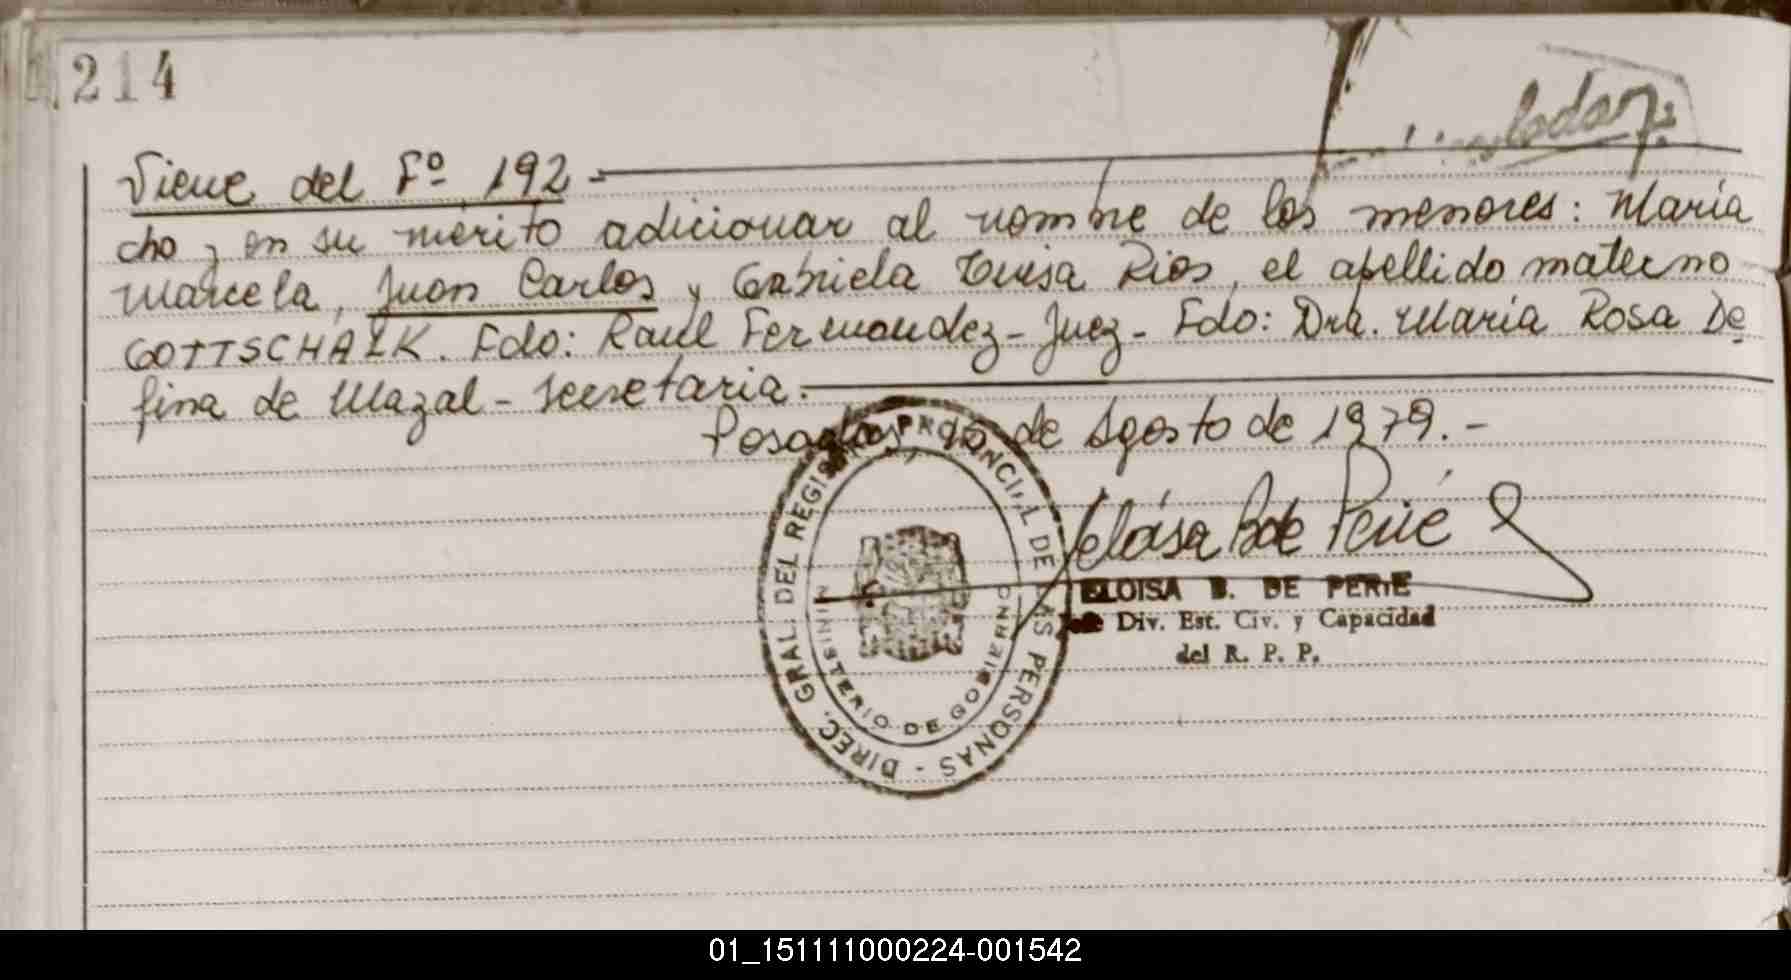 214
Viene del Fº 192
cho, en su mérito adicionar al nombre de los menores: María
Marcela, Juan Carlos y Gabriela Luisa Rios, el apellido materno
GOTTSCHALK. Fdo: Raul Fernandez - Juez - Fdo: Dra. María Rosa De
fina de Mazal - secretaria.
Posadas, de Agosto de 1979.-
DIREC. GRAL. DEL REGISTRO PROVINCIAL DE LAS PERSONAS -
MINISTERIO DE GOBIERNO
Eloisa B de Perié
ELOISA B. DE PERIE
Jefe Div. Est. Civ. y Capacidad
del R. P. P.
01_151111000224-001542